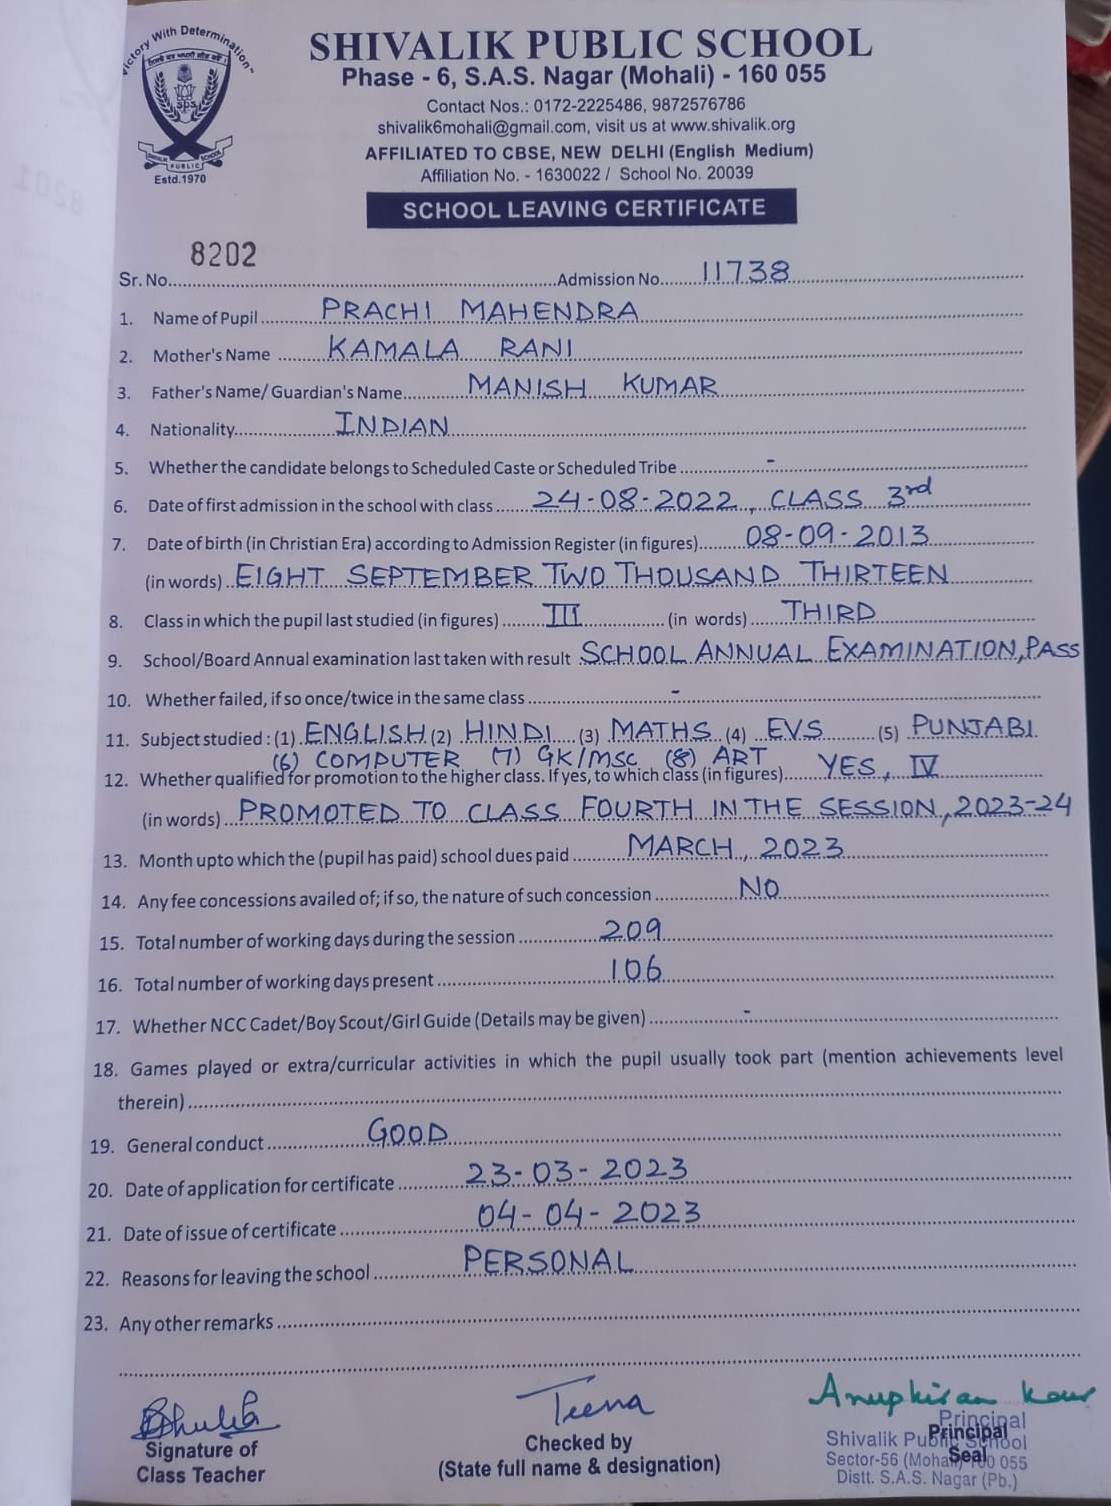 "Victory With Determination"
sps
SHIVALIK PUBLIC SCHOOL
Estd.1970
SHIVALIK PUBLIC SCHOOL
Phase - 6, S.A.S. Nagar (Mohali) - 160 055
Contact Nos.: 0172-2225486, 9872576786
shivalik6mohali@gmail.com, visit us at www.shivalik.org
AFFILIATED TO CBSE, NEW DELHI (English Medium)
Affiliation No. - 1630022 / School No. 20039
SCHOOL LEAVING CERTIFICATE
Sr. No. 8202 Admission No. 11738
1. Name of Pupil PRACHI MAHENDRA
2. Mother's Name KAMALA RANI
3. Father's Name/ Guardian's Name MANISH KUMAR
4. Nationality INDIAN
5. Whether the candidate belongs to Scheduled Caste or Scheduled Tribe -
6. Date of first admission in the school with class 24-08-2022, CLASS 3rd
7. Date of birth (in Christian Era) according to Admission Register (in figures) 08-09-2013
(in words) EIGHT SEPTEMBER TWO THOUSAND THIRTEEN
8. Class in which the pupil last studied (in figures) III (in words) THIRD
9. School/Board Annual examination last taken with result SCHOOL ANNUAL EXAMINATION, PASS
10. Whether failed, if so once/twice in the same class -
11. Subject studied : (1) ENGLISH (2) HINDI (3) MATHS (4) EVS (5) PUNJABI
(6) COMPUTER (7) GK/MSC (8) ART
12. Whether qualified for promotion to the higher class. If yes, to which class (in figures) YES, IV
(in words) PROMOTED TO CLASS FOURTH IN THE SESSION, 2023-24
13. Month upto which the (pupil has paid) school dues paid MARCH, 2023
14. Any fee concessions availed of; if so, the nature of such concession NO
15. Total number of working days during the session 209
16. Total number of working days present 106
17. Whether NCC Cadet/Boy Scout/Girl Guide (Details may be given) -
18. Games played or extra/curricular activities in which the pupil usually took part (mention achievements level
therein)
19. General conduct GOOD
20. Date of application for certificate 23-03-2023
21. Date of issue of certificate 04-04-2023
22. Reasons for leaving the school PERSONAL
23. Any other remarks
Teena
Anupkiran Kaur
Signature of
Class Teacher
Checked by
(State full name & designation)
Principal
Seal
Principal
Shivalik Public School
Sector-56 (Mohali) 160 055
Distt. S.A.S. Nagar (Pb.)